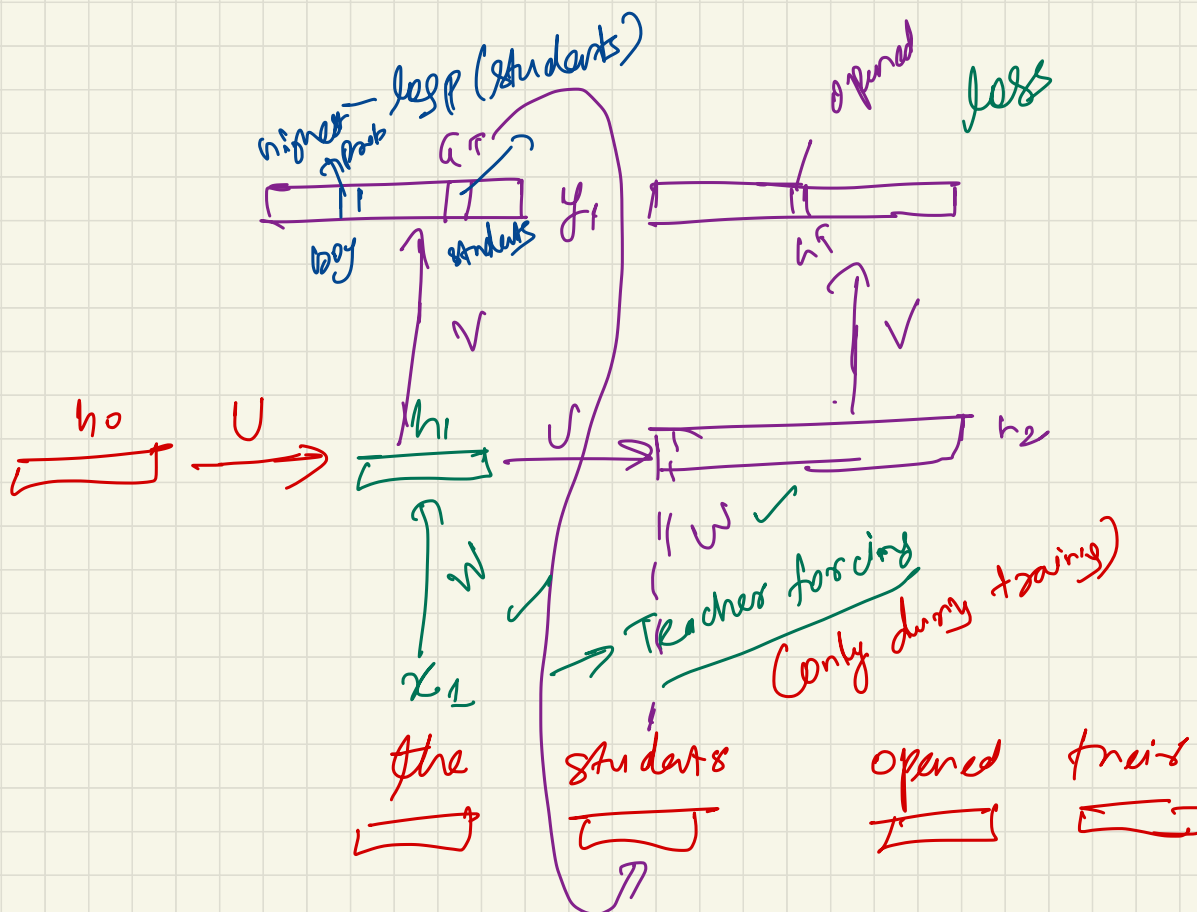 highest prob
- log p (students)
GT
opened
loss
y1
boy
students
GT
V
V
h0
U
h1
U
h2
W
W ✓
✓
→ Teacher forcing
(only during training)
x1
the
students
opened
their